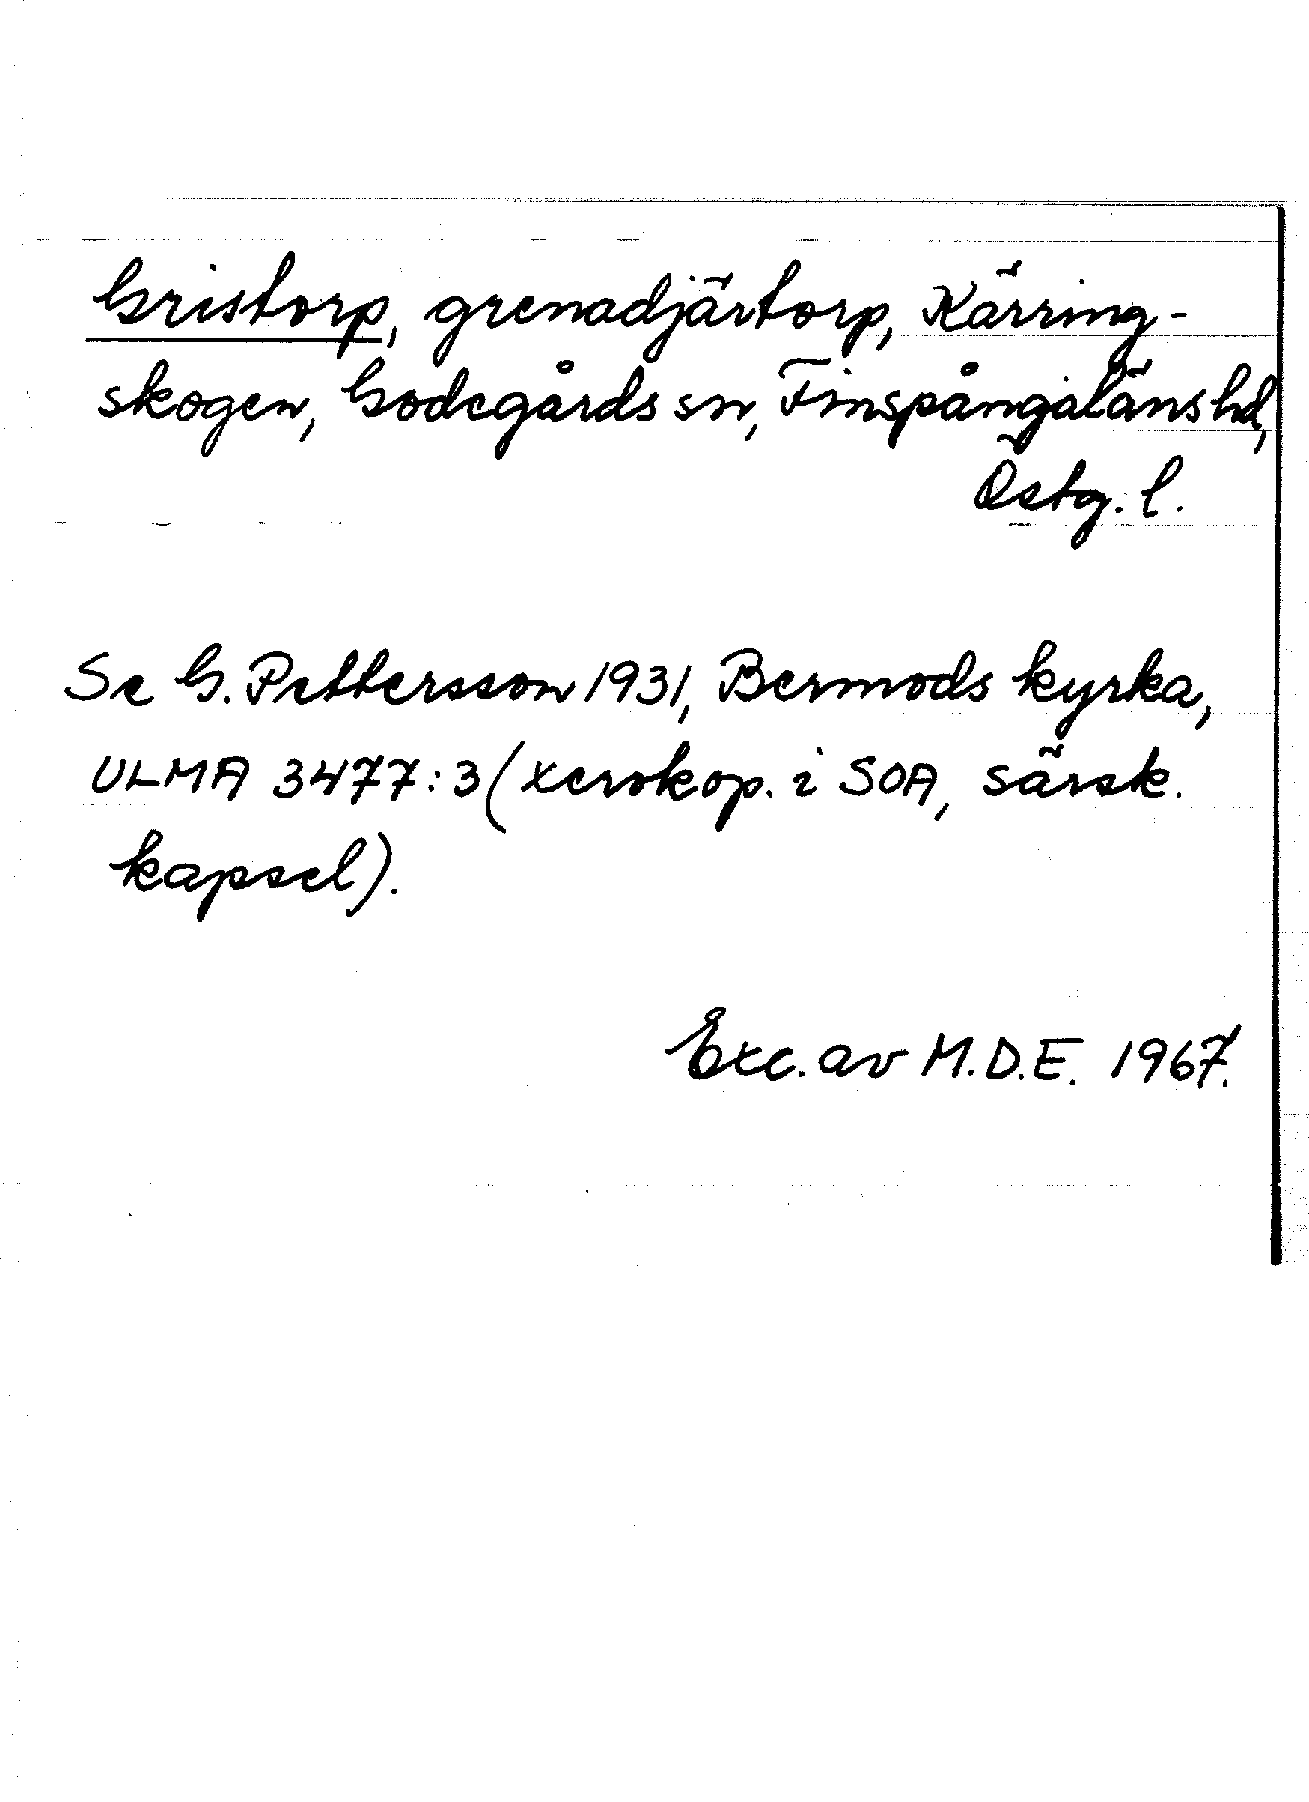 Gristorp, grenadjärtorp, Kärring-
skogen, Godegårds sn, Finspångaläns hd,
Östg. l.
Se G. Pettersson 1931, Bermods kyrka,
ULMA 3477:3 (xerokop. i SOA, särsk.
kapsel).
Exc. av M.D.E. 1967.